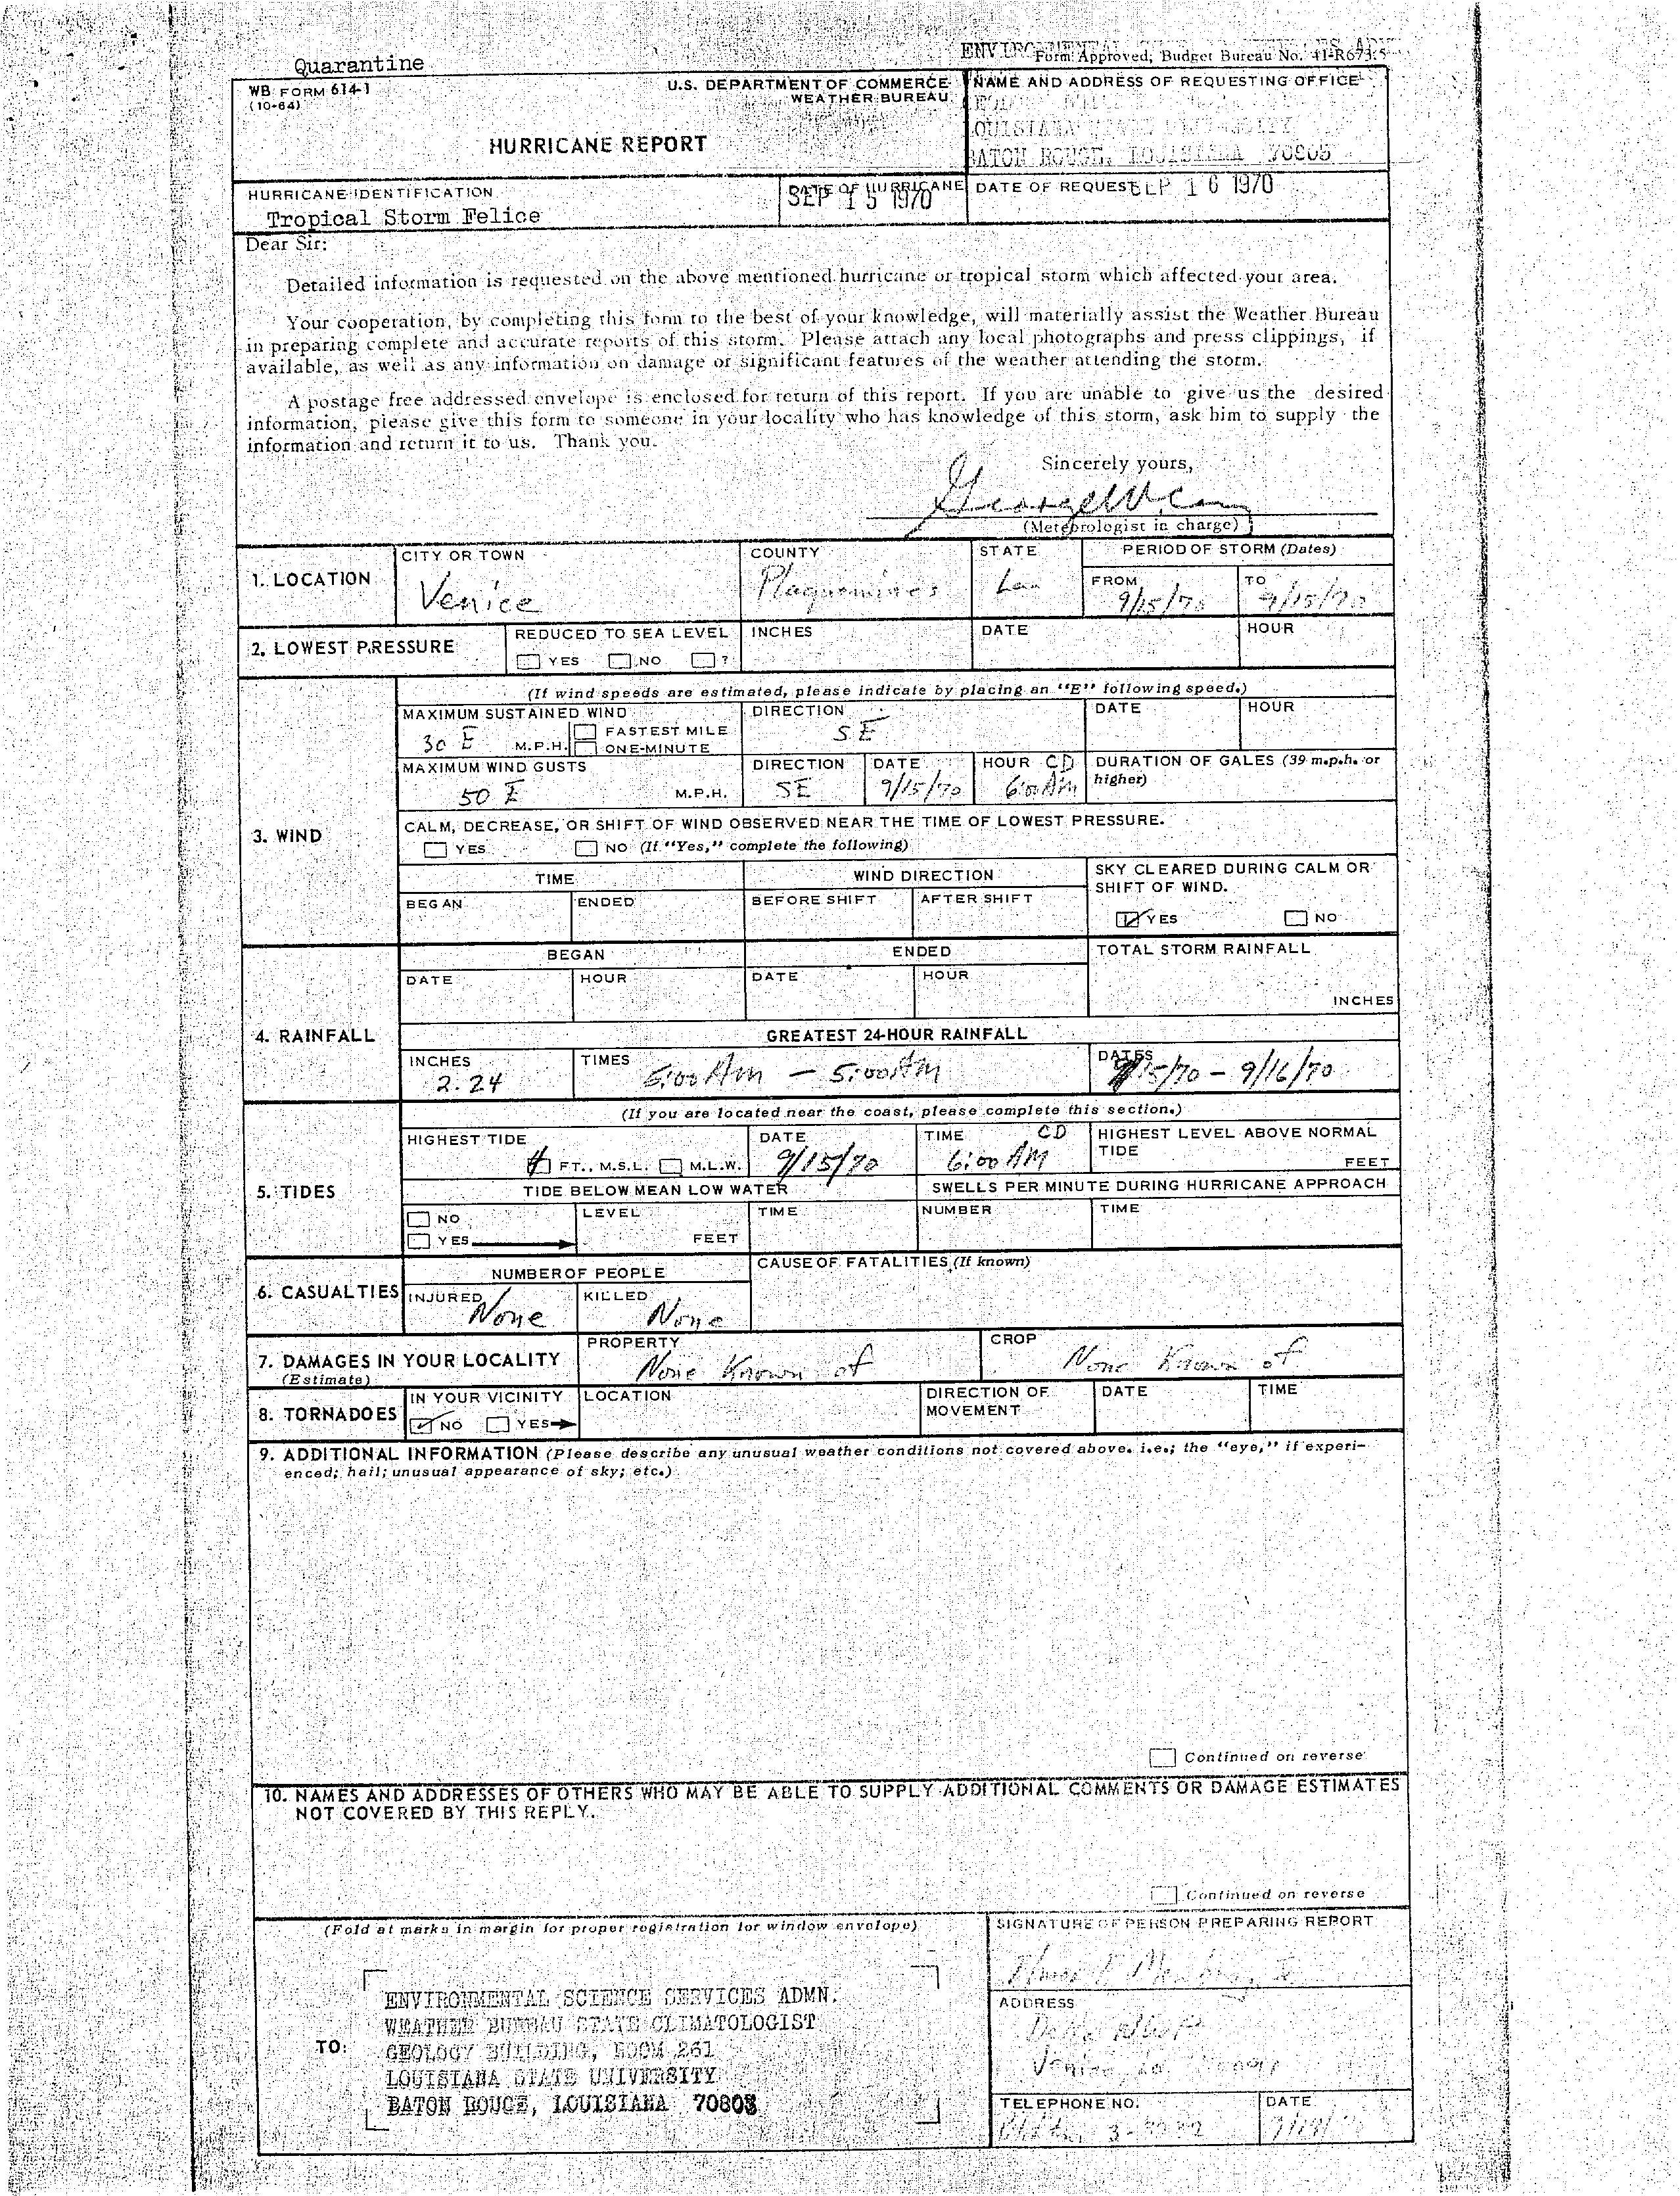 Quarantine
Form Approved; Budget Bureau No. 41-R673.5
WB FORM 614-1
(10-64)
U.S. DEPARTMENT OF COMMERCE
WEATHER BUREAU
NAME AND ADDRESS OF REQUESTING OFFICE
LOUISIANA STATE UNIVERSITY
BATON ROUGE, LOUISIANA 70803
HURRICANE REPORT
HURRICANE IDENTIFICATION
Tropical Storm Felice
DATE OF HURRICANE
SEP 15 1970
DATE OF REQUEST
SEP 16 1970
Dear Sir:
Detailed information is requested on the above mentioned hurricane or tropical storm which affected your area.
Your cooperation, by completing this form to the best of your knowledge, will materially assist the Weather Bureau
in preparing complete and accurate reports of this storm. Please attach any local photographs and press clippings, if
available, as well as any information on damage or significant features of the weather attending the storm.
A postage free addressed envelope is enclosed for return of this report. If you are unable to give us the desired
information, please give this form to someone in your locality who has knowledge of this storm, ask him to supply the
information and return it to us. Thank you.
Sincerely yours,
(Meteorologist in charge)
1. LOCATION
CITY OR TOWN
Venice
COUNTY
Plaquemines
STATE
La.
PERIOD OF STORM (Dates)
FROM
9/15/70
TO
9/15/70
2. LOWEST PRESSURE
REDUCED TO SEA LEVEL
YES NO ?
INCHES
DATE
HOUR
3. WIND
(If wind speeds are estimated, please indicate by placing an "E" following speed.)
MAXIMUM SUSTAINED WIND
30 E M.P.H.
FASTEST MILE
ONE-MINUTE
DIRECTION
SE
DATE
HOUR
MAXIMUM WIND GUSTS
50 E M.P.H.
DIRECTION
SE
DATE
9/15/70
HOUR CD
6:00 AM
DURATION OF GALES (39 m.p.h. or
higher)
CALM, DECREASE, OR SHIFT OF WIND OBSERVED NEAR THE TIME OF LOWEST PRESSURE.
YES NO (If "Yes," complete the following)
TIME
BEGAN ENDED
WIND DIRECTION
BEFORE SHIFT AFTER SHIFT
SKY CLEARED DURING CALM OR
SHIFT OF WIND.
YES NO
4. RAINFALL
BEGAN
DATE HOUR
ENDED
DATE HOUR
TOTAL STORM RAINFALL
INCHES
GREATEST 24-HOUR RAINFALL
INCHES
2.24
TIMES
6:00 AM - 5:00 AM
DATES
9/15/70 - 9/16/70
5. TIDES
(If you are located near the coast, please complete this section.)
HIGHEST TIDE
4 FT., M.S.L. M.L.W.
DATE
9/15/70
TIME CD
6:00 AM
HIGHEST LEVEL ABOVE NORMAL
TIDE
FEET
TIDE BELOW MEAN LOW WATER
NO
YES
LEVEL
FEET
TIME
SWELLS PER MINUTE DURING HURRICANE APPROACH
NUMBER
TIME
6. CASUALTIES
NUMBER OF PEOPLE
INJURED
None
KILLED
None
CAUSE OF FATALITIES (If known)
7. DAMAGES IN YOUR LOCALITY
(Estimate)
PROPERTY
None Known of
CROP
None Known of
8. TORNADOES
IN YOUR VICINITY
NO YES
LOCATION
DIRECTION OF
MOVEMENT
DATE
TIME
9. ADDITIONAL INFORMATION (Please describe any unusual weather conditions not covered above. i.e.; the "eye," if experi-
enced; hail; unusual appearance of sky; etc.)
Continued on reverse
10. NAMES AND ADDRESSES OF OTHERS WHO MAY BE ABLE TO SUPPLY ADDITIONAL COMMENTS OR DAMAGE ESTIMATES
NOT COVERED BY THIS REPLY.
Continued on reverse
(Fold at marks in margin for proper registration for window envelope)
TO:
ENVIRONMENTAL SCIENCE SERVICES ADMN.
WEATHER BUREAU STATE CLIMATOLOGIST
GEOLOGY BUILDING, ROOM 261
LOUISIANA STATE UNIVERSITY
BATON ROUGE, LOUISIANA 70803
SIGNATURE OF PERSON PREPARING REPORT
ADDRESS
Venice, La.
TELEPHONE NO.
DATE